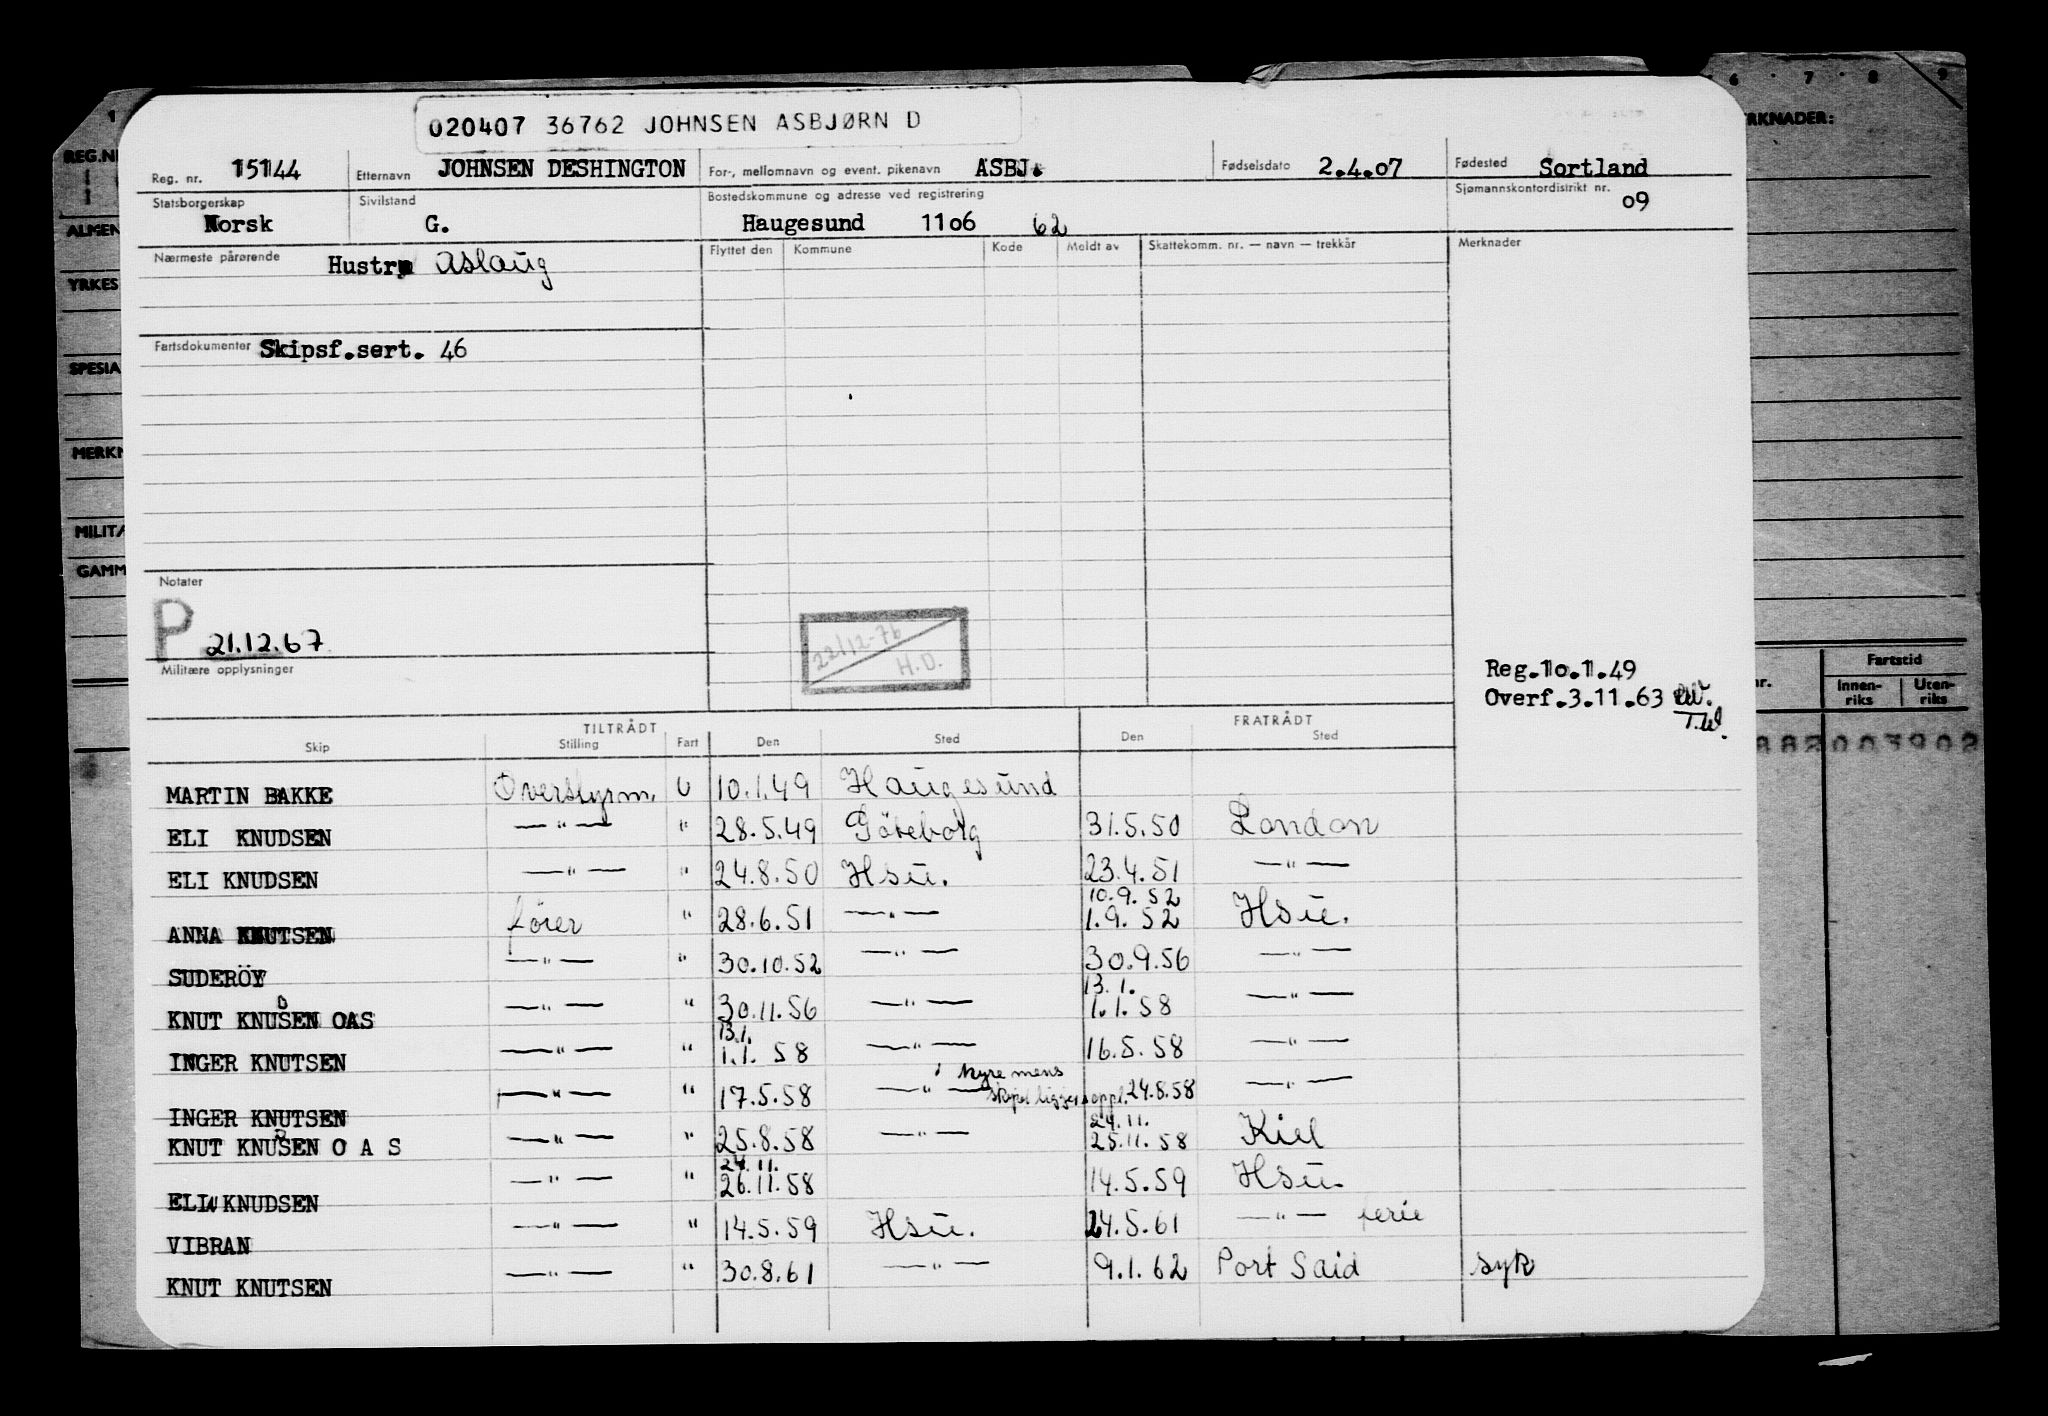 020407 36762 JOHNSEN ASBJØRN D
Reg. nr. 15144 Etternavn JOHNSEN DESHINGTON For-, mellomnavn og event. pikenavn ASBJ. Fødselsdato 2.4.07 Fødested Sortland
Statsborgerskap Norsk Sivilstand G. Bostedskommune og adresse ved registrering Haugesund 1106 62 Sjømannskontordistrikt nr. 09
Nærmeste pårørende Hustru Aslaug Flyttet den Kommune Kode Meldt av Skattekomm. nr. — navn — trekkår Merknader
Fartsdokumenter Skipsf.sert. 46
Notater
P 21.12.67
22/12-76
H.D.
Militære opplysninger
Reg.10.1.49
Overf.3.11.63
TILTRÅDT FRATRÅDT
Skip Stilling Fart Den Sted Den Sted
MARTIN BAKKE Overstyrm. U 10.1.49 Haugesund
ELI KNUDSEN — " — " 28.5.49 Göteborg 31.5.50 London
ELI KNUDSEN — " — " 24.8.50 Hsu. 23.4.51 — " —
10.9.52
ANNA KNUTSEN fører " 28.6.51 — " — 1.9.52 Hsu.
SUDERÖY — " — " 30.10.52 — " — 30.9.56 — " —
D 13.1.
KNUT KNUSEN OAS — " — " 30.11.56 — " — 1.1.58 — " —
13.1.
INGER KNUTSEN — " — " 1.1.58 — " — 16.5.58 — " —
i hyre mens
INGER KNUTSEN — " — " 17.5.58 — " — skipet ligger i oppl. 24.8.58 — " —
D 24.11.
KNUT KNUSEN O A S — " — " 25.8.58 — " — 25.11.58 Kiel
24.11.
ELI KNUDSEN — " — " 26.11.58 14.5.59 Hsu.
VIBRAN — " — " 14.5.59 Hsu. 24.5.61 — " — ferie
KNUT KNUTSEN — " — " 30.8.61 — " — 9.1.62 Port Said syk
1
REG.N
ALMEN
YRKES
SPESIA
MERKN
MILITÆ
GAMM
6 7 8 9
RKNADER:
nr. Fartstid
Innen-riks Uten-riks
882 003902